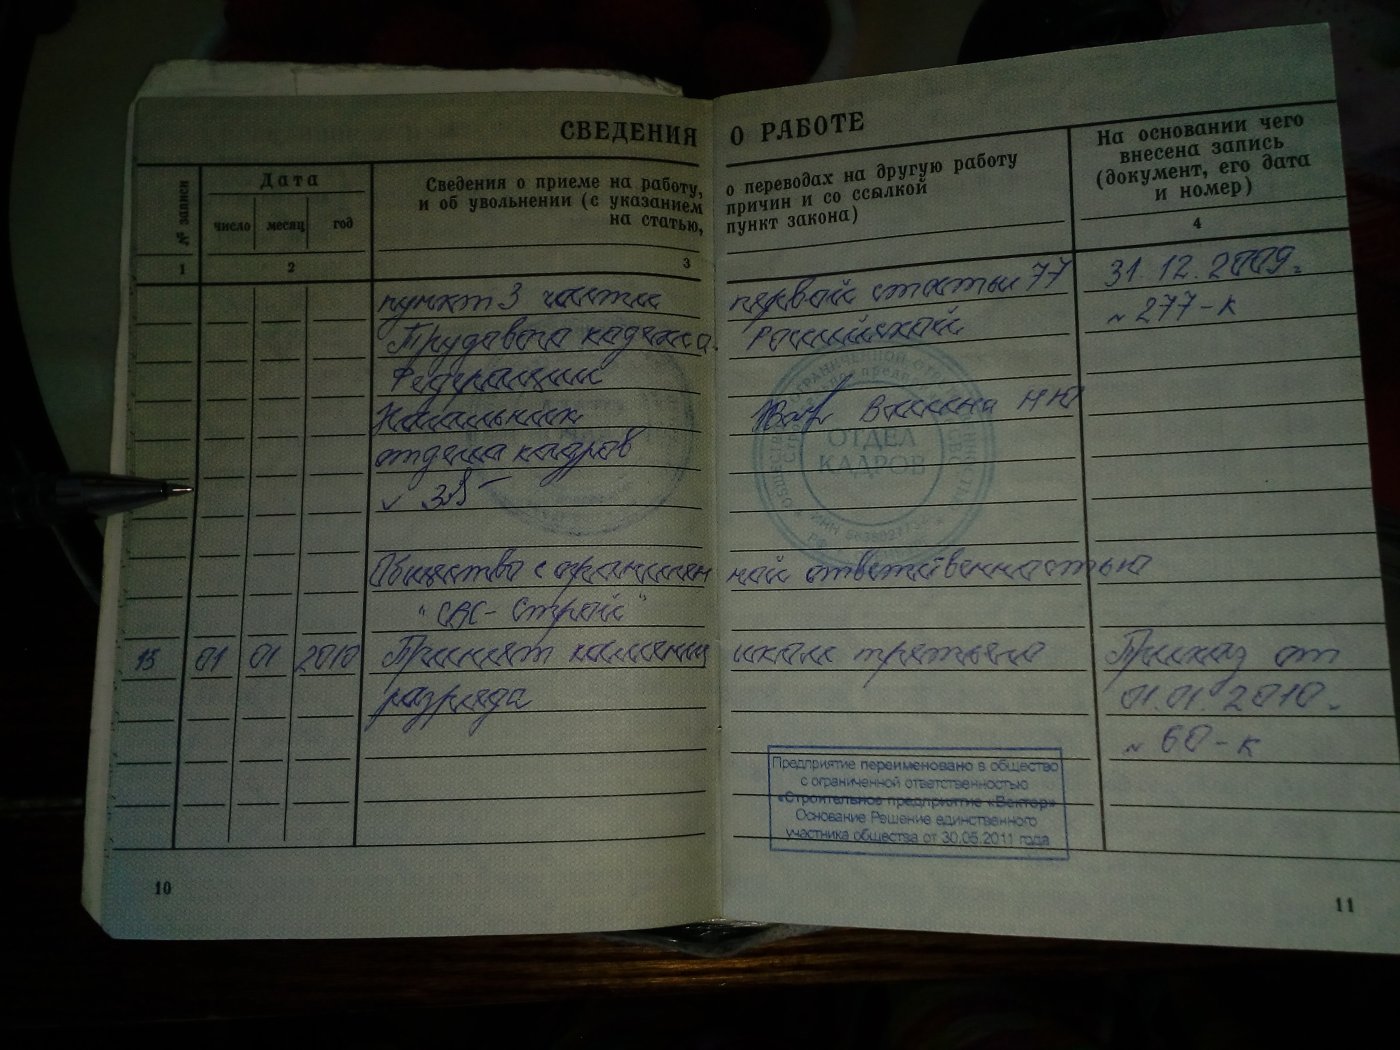 СВЕДЕНИЯ О РАБОТЕ
№ записи
Дата
число месяц год
Сведения о приеме на работу, о переводах на другую работу
и об увольнении (с указанием причин и со ссылкой
на статью, пункт закона)
На основании чего
внесена запись
(документ, его дата
и номер)
1 2 3 4
пункт 3 части первой статьи 77 31.12.2009г.
Трудового кодекса Российской № 277-к
Федерации
Начальник
отдела кадров
ОТДЕЛ
КАДРОВ
Общество с ограниченной ответственностью
"СВС-Строй"
15 01 01 2010 Принят каменщиком третьего Приказ от
разряда 01.01.2010г.
№ 60-к
Предприятие переименовано в общество
с ограниченной ответственностью
«Строительное предприятие «Вектор»
Основание Решение единственного
участника общества от 30.05.2011 года
10
11